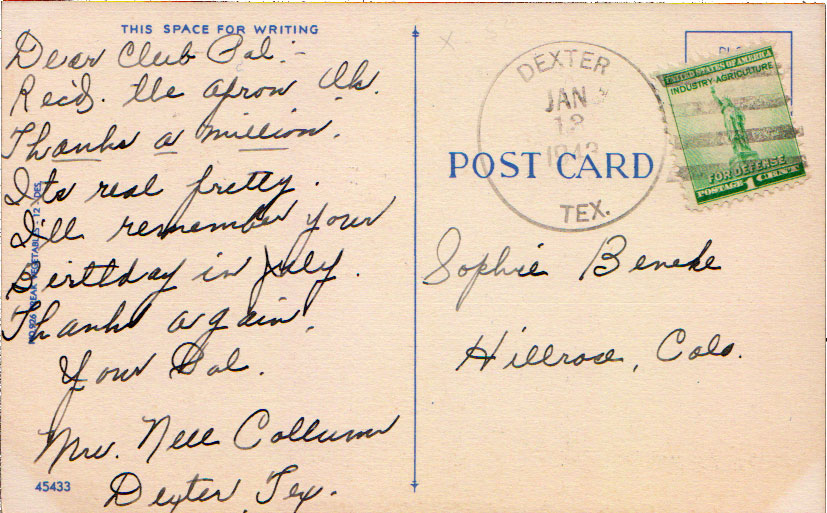 THIS SPACE FOR WRITING
Dear Club Pal:-
Rec'd. the apron Ok.
Thanks a million.
Its real pretty.
I'll remember your
Birthday in July.
Thanks again.
Your Pal.
Mrs. Nell Collum
Dexter, Tex.
45433
DEXTER
JAN
13
1943
TEX.
POST CARD
UNITED STATES OF AMERICA
INDUSTRY-AGRICULTURE
FOR DEFENSE
POSTAGE 1 CENT
Sophie Beneke
Hillrose, Colo.